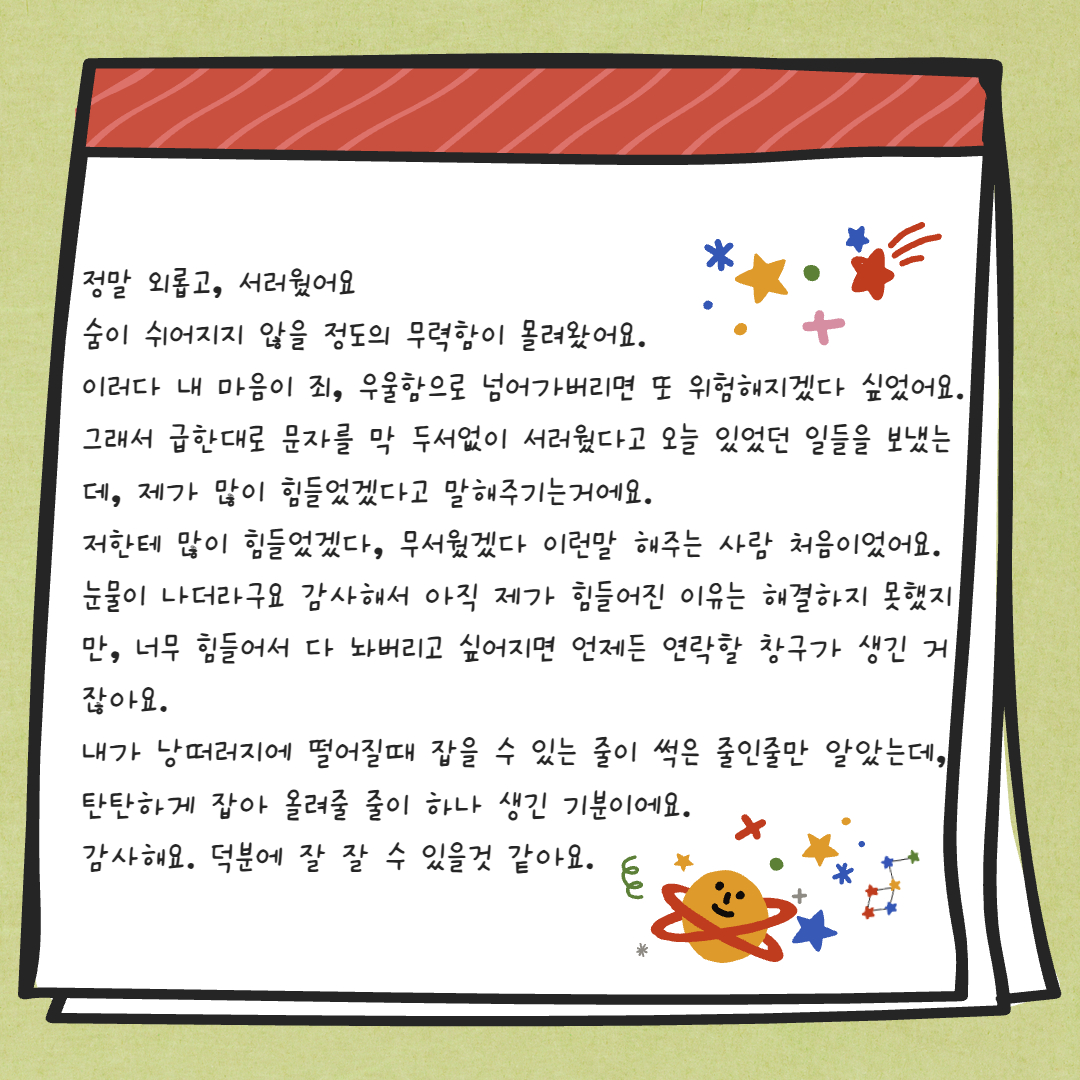 정말 외롭고, 서러웠어요
숨이 쉬어지지 않을 정도의 무력함이 몰려왔어요.
이러다 내 마음이 죄, 우울함으로 넘어가버리면 또 위험해지겠다 싶었어요.
그래서 급한대로 문자를 막 두서없이 서러웠다고 오늘 있었던 일들을 보냈는
데, 제가 많이 힘들었겠다고 말해주기는거에요.
저한테 많이 힘들었겠다, 무서웠겠다 이런말 해주는 사람 처음이었어요.
눈물이 나더라구요 감사해서 아직 제가 힘들어진 이유는 해결하지 못했지
만, 너무 힘들어서 다 놔버리고 싶어지면 언제든 연락할 창구가 생긴 거
잖아요.
내가 낭떠러지에 떨어질때 잡을 수 있는 줄이 썩은 줄인줄만 알았는데,
탄탄하게 잡아 올려줄 줄이 하나 생긴 기분이에요.
감사해요. 덕분에 잘 잘 수 있을것 같아요.